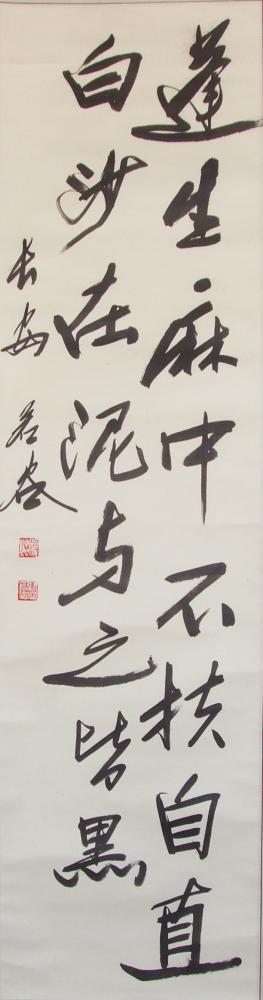 蓬生麻中不扶自直
白沙在泥与之皆黑
长安